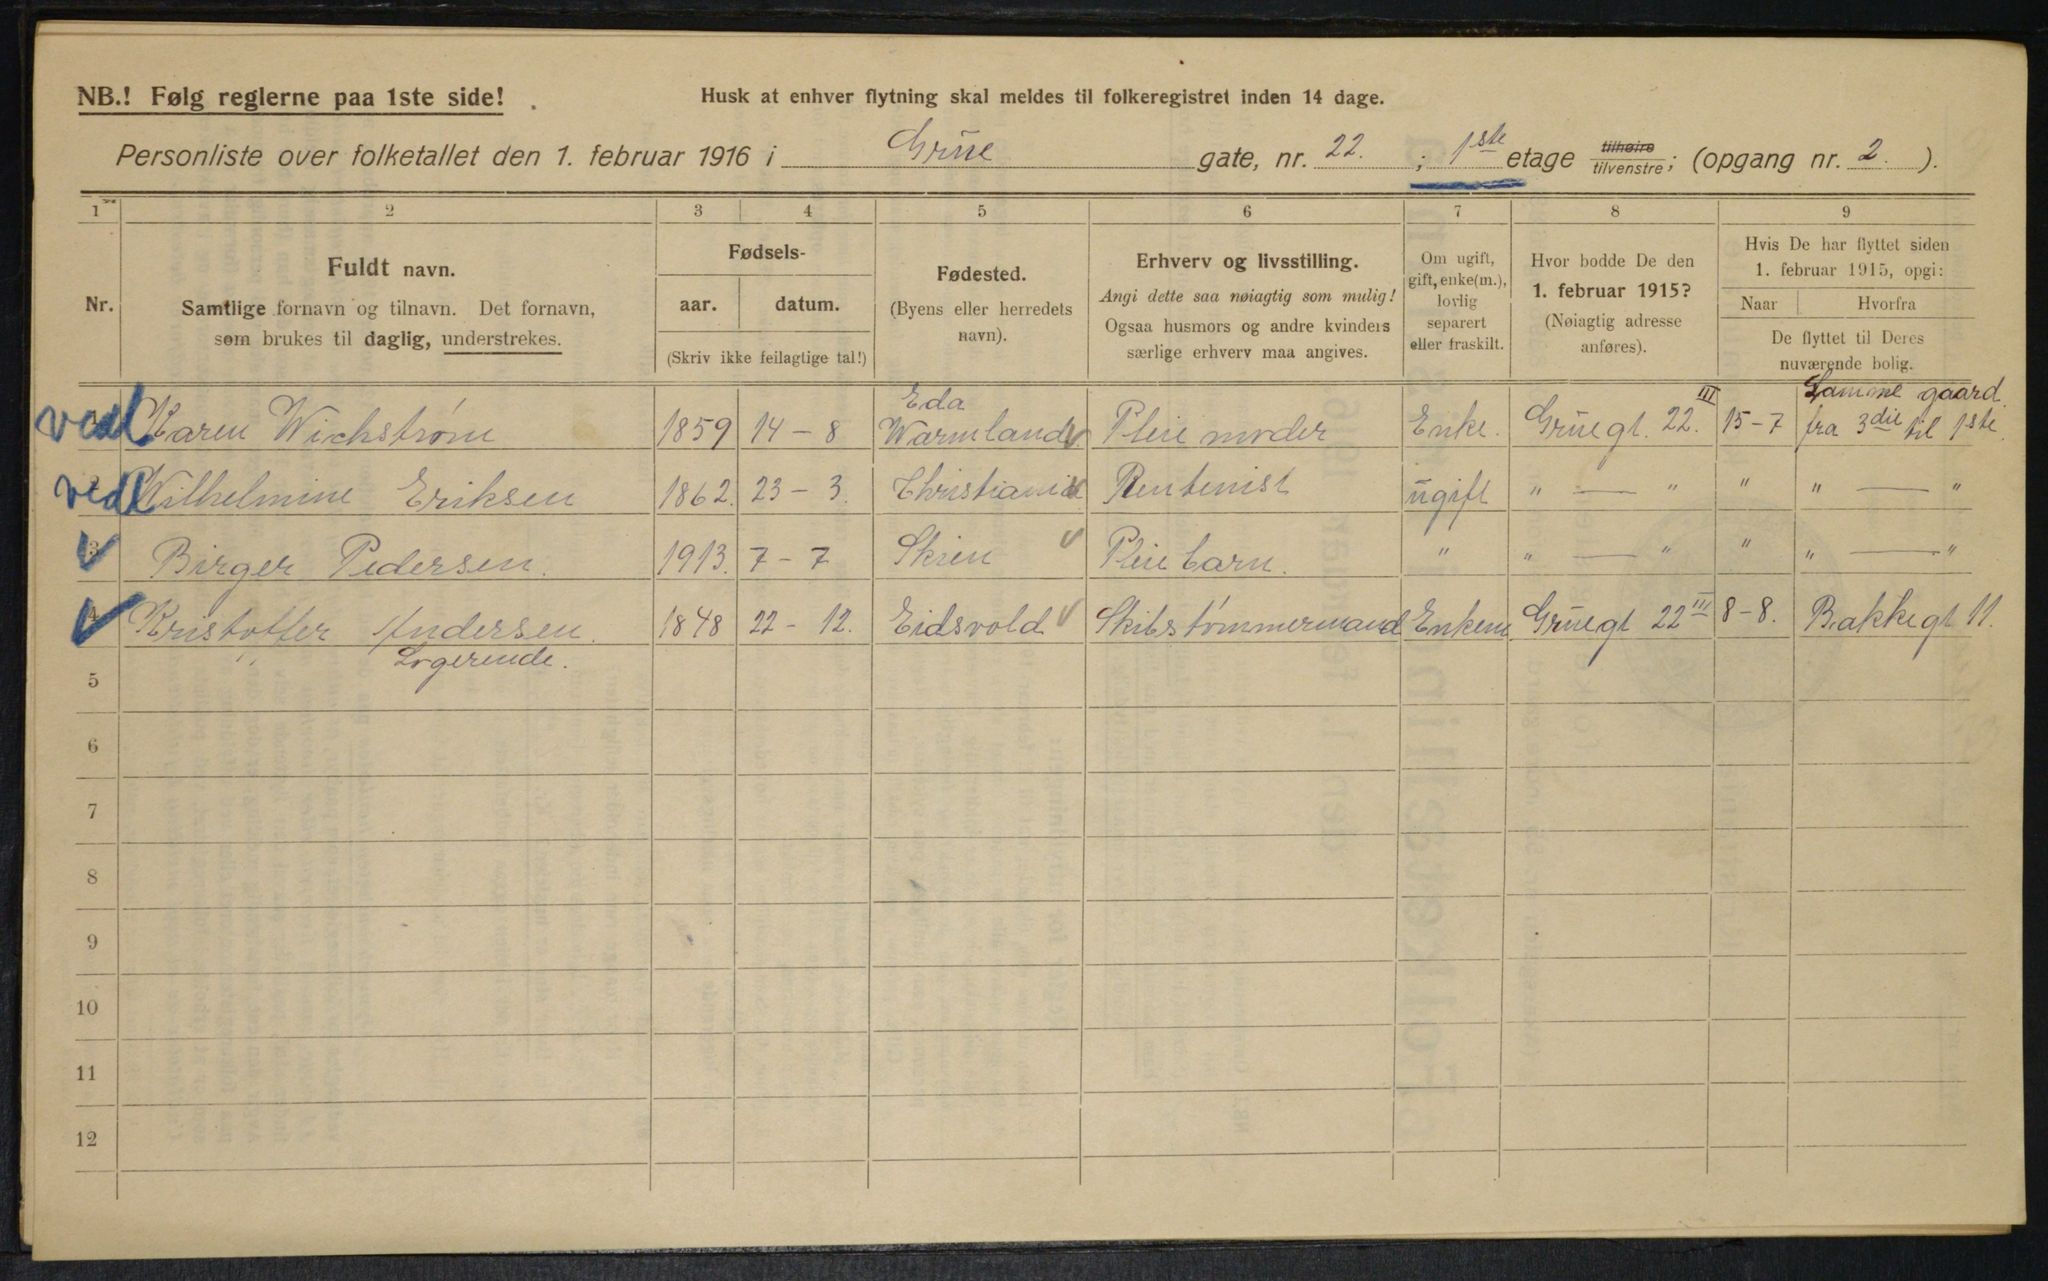 NB.! Følg reglerne paa 1ste side!
Husk at enhver flytning skal meldes til folkeregistret inden 14 dage.
Personliste over folketallet den 1. februar 1916 i Grüe gate, nr. 22. ; 1ste etage tilhøire tilvenstre; (opgang nr. 2. ).
1 2 3 4 5 6 7 8 9
Nr.
Fuldt navn.
Samtlige fornavn og tilnavn. Det fornavn,
som brukes til daglig, understrekes.
Fødsels-
aar. datum.
(Skriv ikke feilagtige tal!)
Fødested.
(Byens eller herredets
navn).
Erhverv og livsstilling.
Angi dette saa nøiagtig som mulig!
Ogsaa husmors og andre kvinders
særlige erhverv maa angives.
Om ugift,
gift, enke(m.),
lovlig
separert
eller fraskilt.
Hvor bodde De den
1. februar 1915?
(Nøiagtig adresse
anføres).
Hvis De har flyttet siden
1. februar 1915, opgi:
Naar Hvorfra
De flyttet til Deres
nuværende bolig.
Eda Samme gaard.
ved Karen Wichstrøm 1859 14 - 8 Warmland Pleiemoder Enke. Grüegt. 22. III 15-7 fra 3die til 1ste.
ved Wilhelmine Eriksen 1862. 23 - 3. Christiania Rentenist ugift " — " " " — "
3 Birger Pedersen. 1913. 7 - 7 Skien Pleiebarn. " " — " " " — "
4 Kristoffer Andersen. 1848 22 - 12. Eidsvold Skibstømmermand Enkem. Grüegt 22 III 8-8. Bakkegt 11.
Logerende.
5
6
7
8
9
10
11
12